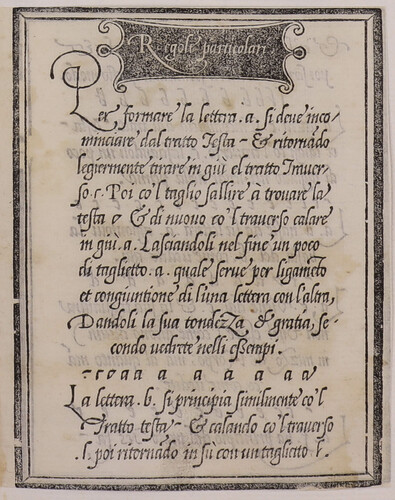 Regole particolari
Per formare la lettera .a. si deve inco-
minciare dal tratto Testa - & ritornãdo
legiermente tirare in giù el tratto Traver-
so . Poi co'l taglio sallire à trouare la
testa & di nuouo co'l trauerso calare
in giù .a. Lasciandoli nel fine un poco
di taglietto .a. quale serue per ligamẽto
et congiuntione di l'una lettera con l'altra,
Dandoli la sua tondezza & gratia, se-
condo uedrete nelli essempi.
a a a a a a a
La lettera .b. si principia similmente co'l
Tratto testa - & calando co'l trauerso
.l. poi ritornãdo in sù con un taglietto l.